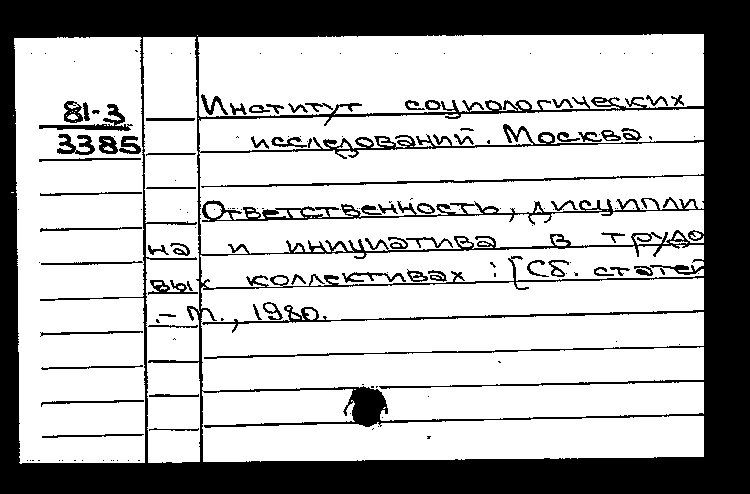 81-3
3385
Институт социологических
исследований. Москва.
Ответственность, дисципли
на и инициатива в трудо
вых коллективах : [Сб. статей
.- М., 1980.